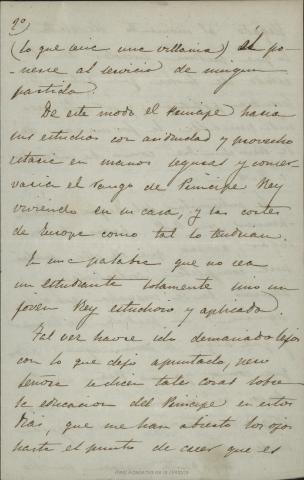 2º
(lo que seria una villania) él po-
nerse al servicio de ningun
partido.
De este modo el Principe haria
sus estudios con asiduidad y provecho
estaria en manos seguras y conser
varia el rango de Principe Rey
viviendo en su casa, y las cortes
de Europa como tal lo tendrian.
En una palabra que no sea
un estudiante solamente sino un
joven Rey estudioso y aplicado.
Tal vez habré ido demasiado lejos
con lo que dejo apuntado, pero
Señora se dicen tales cosas sobre
la educacion del Principe en estos
dias, que me han abierto los ojos
hasta el punto de creer que es
Real Academia de la Historia